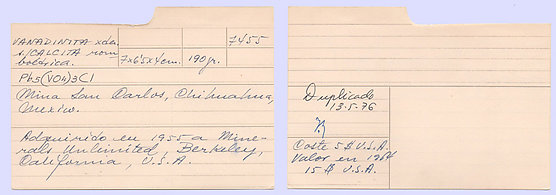 VANADINITA xds.
s/CALCITA rom-
boédrica.
7x6'5x4cm.
190 gr.
7455
Pb5(VO4)3Cl
Mina San Carlos, Chihuahua,
Mexico.
Adquirido en 1955 a Mine-
rals Unlimited, Berkeley,
California, U.S.A.
Duplicado
13-5-76
Coste 5$ U.S.A.
Valor en 1964
15$ U.S.A.